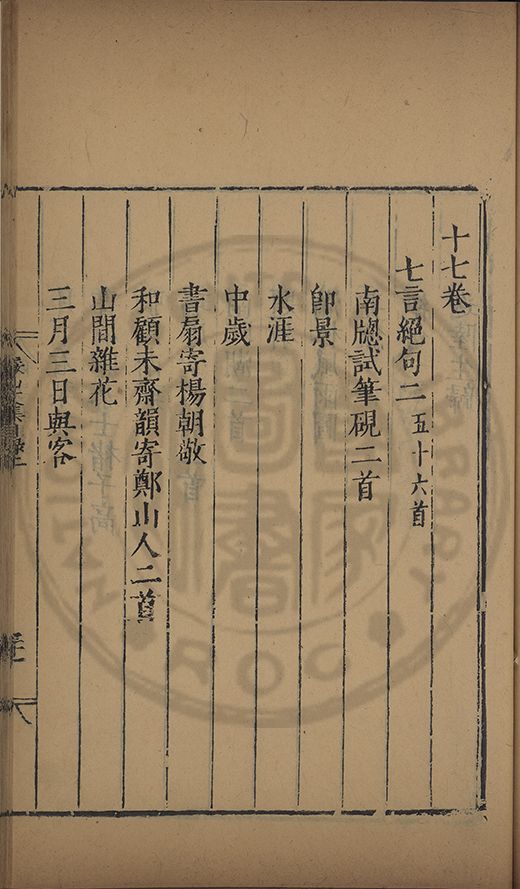 十七卷
七言絕句二 五十六首
南牕試筆硯二首
卽景
水涯
中歲
書扇寄楊朝敬
和顧未齋韻寄鄭山人二首
山間雜花
三月三日與客